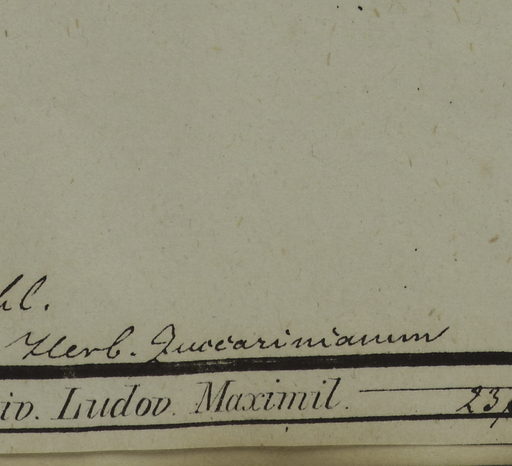 hl.
Herb. Zuccarinianum
iv. Ludov. Maximil. 23,